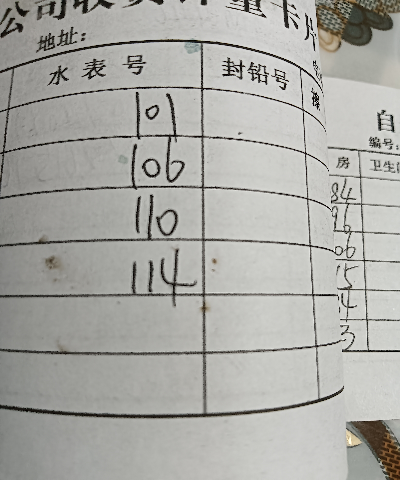 公司收费计量卡片
地址:
水表号 封铅号
101
106
110
114
自
编号:
房 卫生
84
96
06
15
14
3